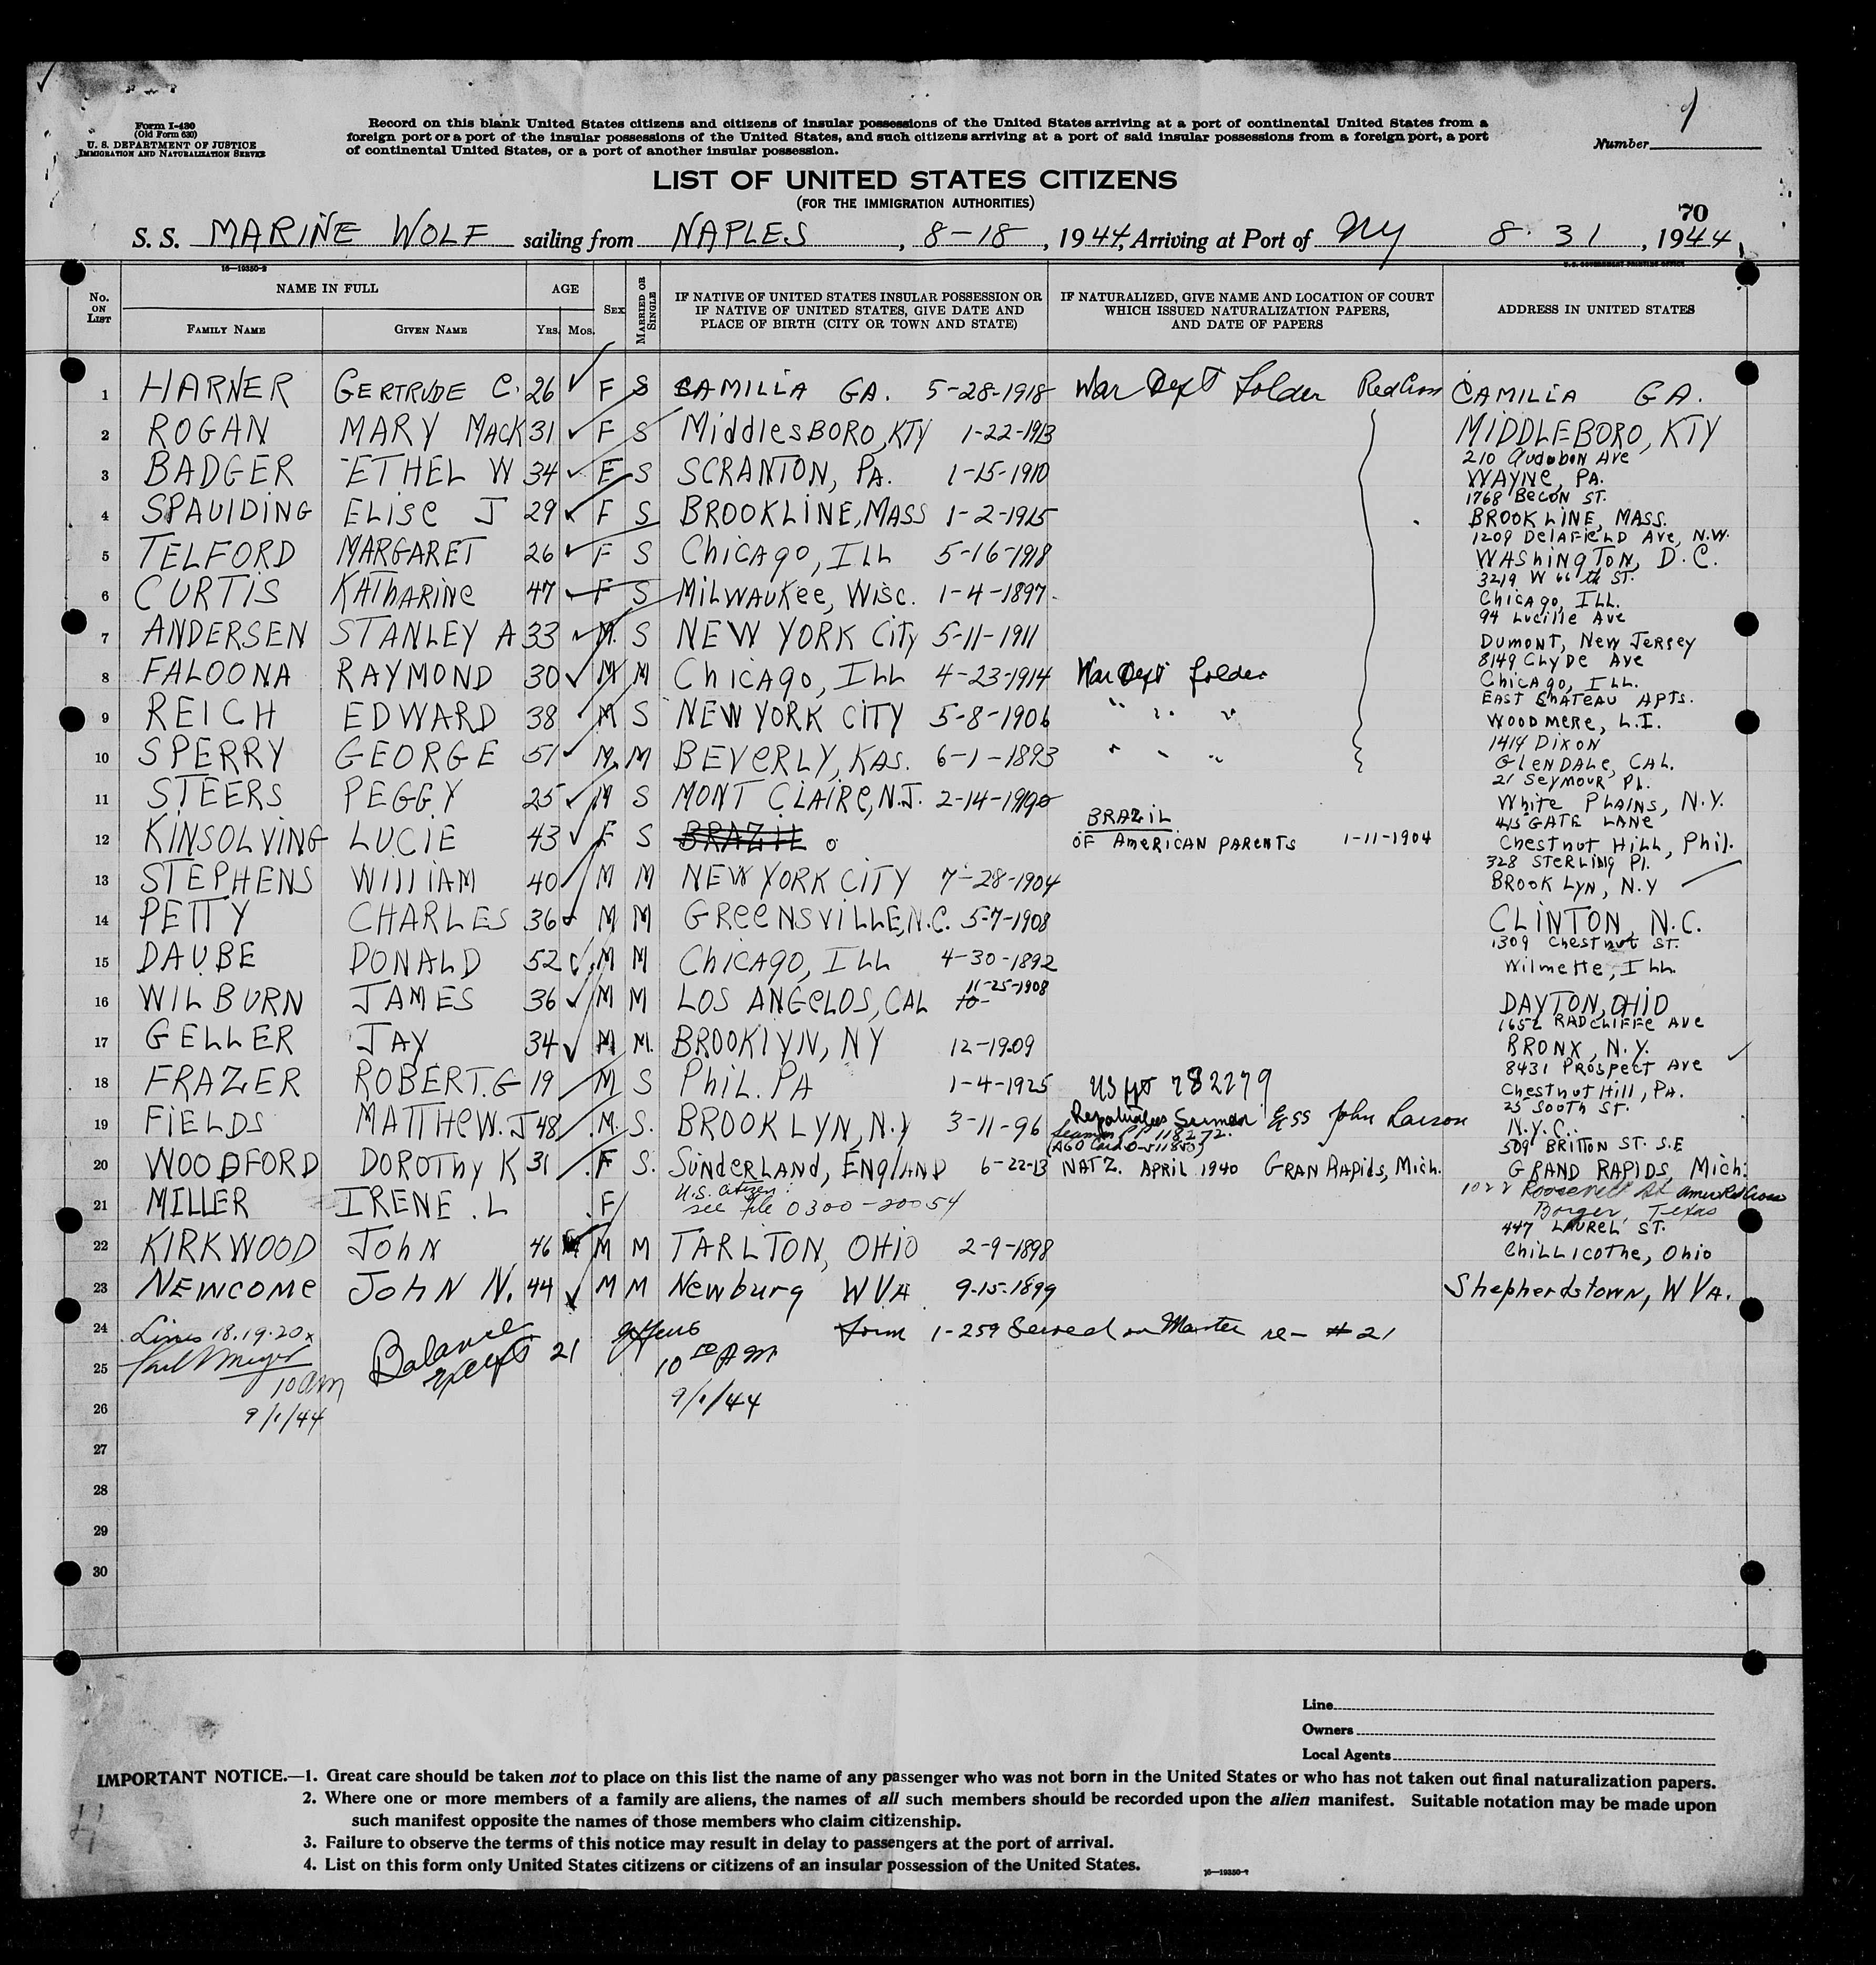 Form I-430
(Old Form 630)
U. S. DEPARTMENT OF JUSTICE
IMMIGRATION AND NATURALIZATION SERVICE
Record on this blank United States citizens and citizens of insular possessions of the United States arriving at a port of continental United States from a
foreign port or a port of the insular possessions of the United States, and such citizens arriving at a port of said insular possessions from a foreign port, a port
of continental United States, or a port of another insular possession.
Number
LIST OF UNITED STATES CITIZENS
(FOR THE IMMIGRATION AUTHORITIES)
70
S. S. MARINE WOLF sailing from NAPLES, 8-18, 1944, Arriving at Port of NY 8. 31, 1944
16—19350-2 U.S. GOVERNMENT PRINTING OFFICE
No. ON LIST
NAME IN FULL
FAMILY NAME GIVEN NAME
AGE
YRS. MOS.
SEX
MARRIED OR SINGLE
IF NATIVE OF UNITED STATES INSULAR POSSESSION OR
IF NATIVE OF UNITED STATES, GIVE DATE AND
PLACE OF BIRTH (CITY OR TOWN AND STATE)
IF NATURALIZED, GIVE NAME AND LOCATION OF COURT
WHICH ISSUED NATURALIZATION PAPERS,
AND DATE OF PAPERS
ADDRESS IN UNITED STATES
1 HARNER GERTRUDE C. 26 F S CAMILLA GA. 5-28-1918 War Dept folder Red Cross CAMILLA GA.
2 ROGAN MARY MACK 31 F S MiddlesBORO, KTY 1-22-1913 MIDDLEBORO, KTY
210 Audobon Ave
3 BADGER ETHEL W 34 F S SCRANTON, PA. 1-15-1910 WAYNE, PA.
1768 Becon ST.
4 SPAUIDING ELISE J 29 F S BROOKLINE, MASS 1-2-1915 BROOKLINE, MASS.
1209 DelAFIELD Ave, N.W.
5 TELFORD MARGARET 26 F S ChicAgo, ILL 5-16-1918 WAShingTON, D.C.
3219 W 66 th ST.
6 CURTIS KATHARINE 47 F S MILWAUKee, WISC. 1-4-1897 ChicAgo, ILL.
94 Lucille Ave
7 ANDERSEN STANLEY A 33 M. S NEW YORK City 5-11-1911 Dumont, New Jersey
8149 Clyde Ave
8 FALOONA RAYMOND 30 M M ChicAgo, ILL 4-23-1914 War Dept folder ChicAgo, ILL.
EAST ChATEAU APTS.
9 REICH EDWARD 38 M S NEW YORK CITY 5-8-1906 " " " WOODMERE, L.I.
1414 DIXON
10 SPERRY GEORGE 51 M. M BEVERLY, KAS. 6-1-1893 " " " GLENDALE, CAL.
21 Seymour Pl.
11 STEERS PEGGY 25 S MONT CLAIRE, N.J. 2-14-19 White PLAINS, N.Y.
415 GATE LANE
12 KINSOLVING LUCIE 43 F S BRAZIL BRAZIL
OF AMERICAN PARENTS 1-11-1904 Chestnut Hill, Phil.
328 STERLING Pl.
13 STEPHENS WIllIAM 40 M M NEW YORK CITY 7-28-1904 BROOKLYN, N.Y
14 PETTY CHARLES 36 M M GREENSVILLE, N.C. 5-7-1908 CLINTON, N.C.
1309 Chestnut ST.
15 DAUBE DONALD 52 M M ChicAgo, ILL 4-30-1892 Wilmette, ILL.
16 WILBURN JAMES 36 M M LOS ANGELOS, CAL 11-25-1908 DAYTON, OHIO
1652 RADCLIFFE Ave
17 GELLER JAY 34 M M. BROOKlYN, NY 12-1909 BRONX, N.Y.
8431 PROSPECT Ave
18 FRAZER ROBERT. G 19 M S Phil. PA 1-4-1925 782279 Chestnut Hill, PA.
25 SOUTH ST.
19 FIELDS MATTHEW. J 48 M. S. BROOKLYN, N.Y 3-11-96 Seaman Ex SS John Larson N.Y.C.
118272.
509 BRITTON ST. S.E
20 WOODFORD DOROTHY K 31 F S. SUNDERLAND, ENGLAND 6-22-13 NATZ. APRIL 1940 GRAN RAPIDS, Mich. GRAND RAPIDS, Mich.
1022 Roosevelt St Amer Red Cross
21 MILLER IRENE. L F U.S. Citizen.
see file 0300-20054 Borger, Texas
447 LAUREL ST.
22 KIRKWOOD John 46 M M TARLTON, OHIO 2-9-1898 ChILLICOTHE, Ohio
23 NEWCOME JOHN N. 44 M M Newburg W VA. 9-15-1899 Shepherdstown, W VA.
24 Lines 18.19.20 Balance except 21 form 1-259 Served on Master re- #21
25 10 am 10 00 A M
26 9/1/44 9/1/44
27
28
29
30
Line
Owners
Local Agents
IMPORTANT NOTICE.—1. Great care should be taken not to place on this list the name of any passenger who was not born in the United States or who has not taken out final naturalization papers.
2. Where one or more members of a family are aliens, the names of all such members should be recorded upon the alien manifest. Suitable notation may be made upon
such manifest opposite the names of those members who claim citizenship.
3. Failure to observe the terms of this notice may result in delay to passengers at the port of arrival.
4. List on this form only United States citizens or citizens of an insular possession of the United States.